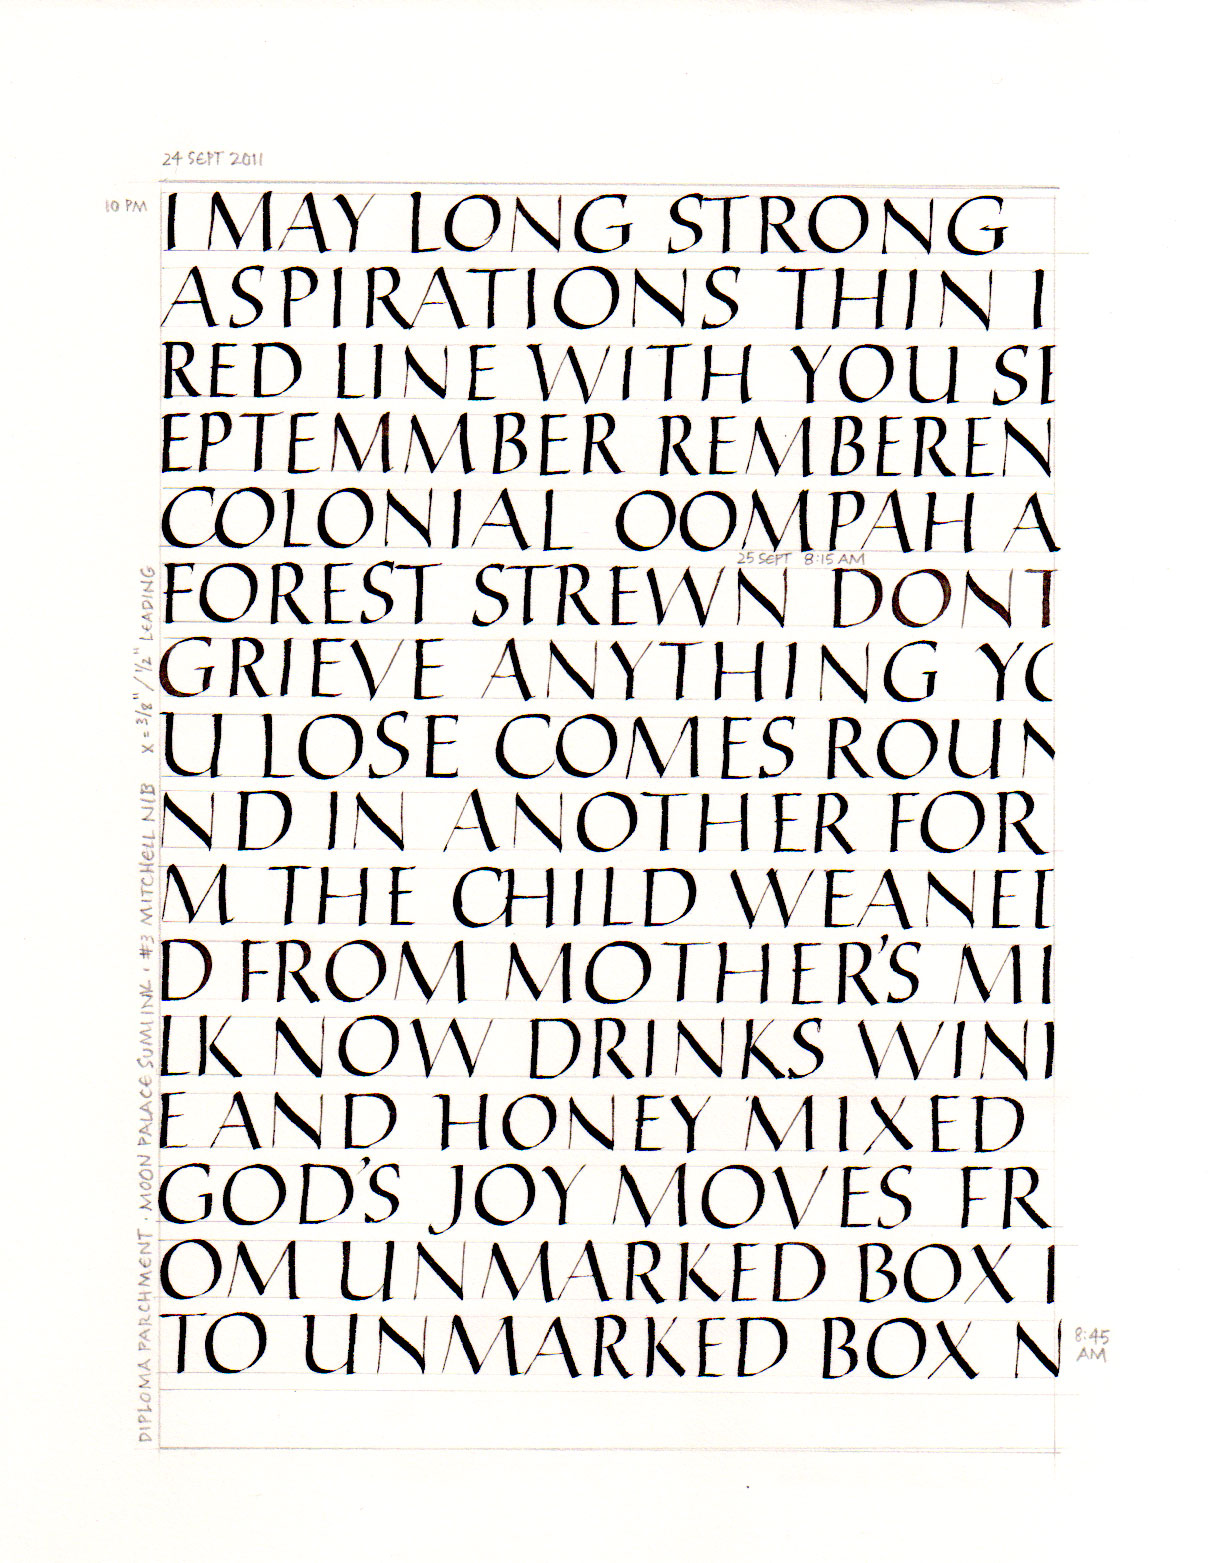 24 SEPT 2011
10 PM
I MAY LONG STRONG
ASPIRATIONS THIN I
RED LINE WITH YOU SE
EPTEMMBER REMBEREN
COLONIAL OOMPAH A
25 SEPT 8:15 AM
FOREST STREWN DONT
GRIEVE ANYTHING YO
U LOSE COMES ROUN
ND IN ANOTHER FOR
M THE CHILD WEANED
D FROM MOTHER'S MI
LK NOW DRINKS WINE
E AND HONEY MIXED
GOD'S JOY MOVES FR
OM UNMARKED BOX I
TO UNMARKED BOX N
8:45
AM
DIPLOMA PARCHMENT · MOON PALACE SUMI INK · #3 MITCHELL NIB X = 3/8" / 1/2" LEADING